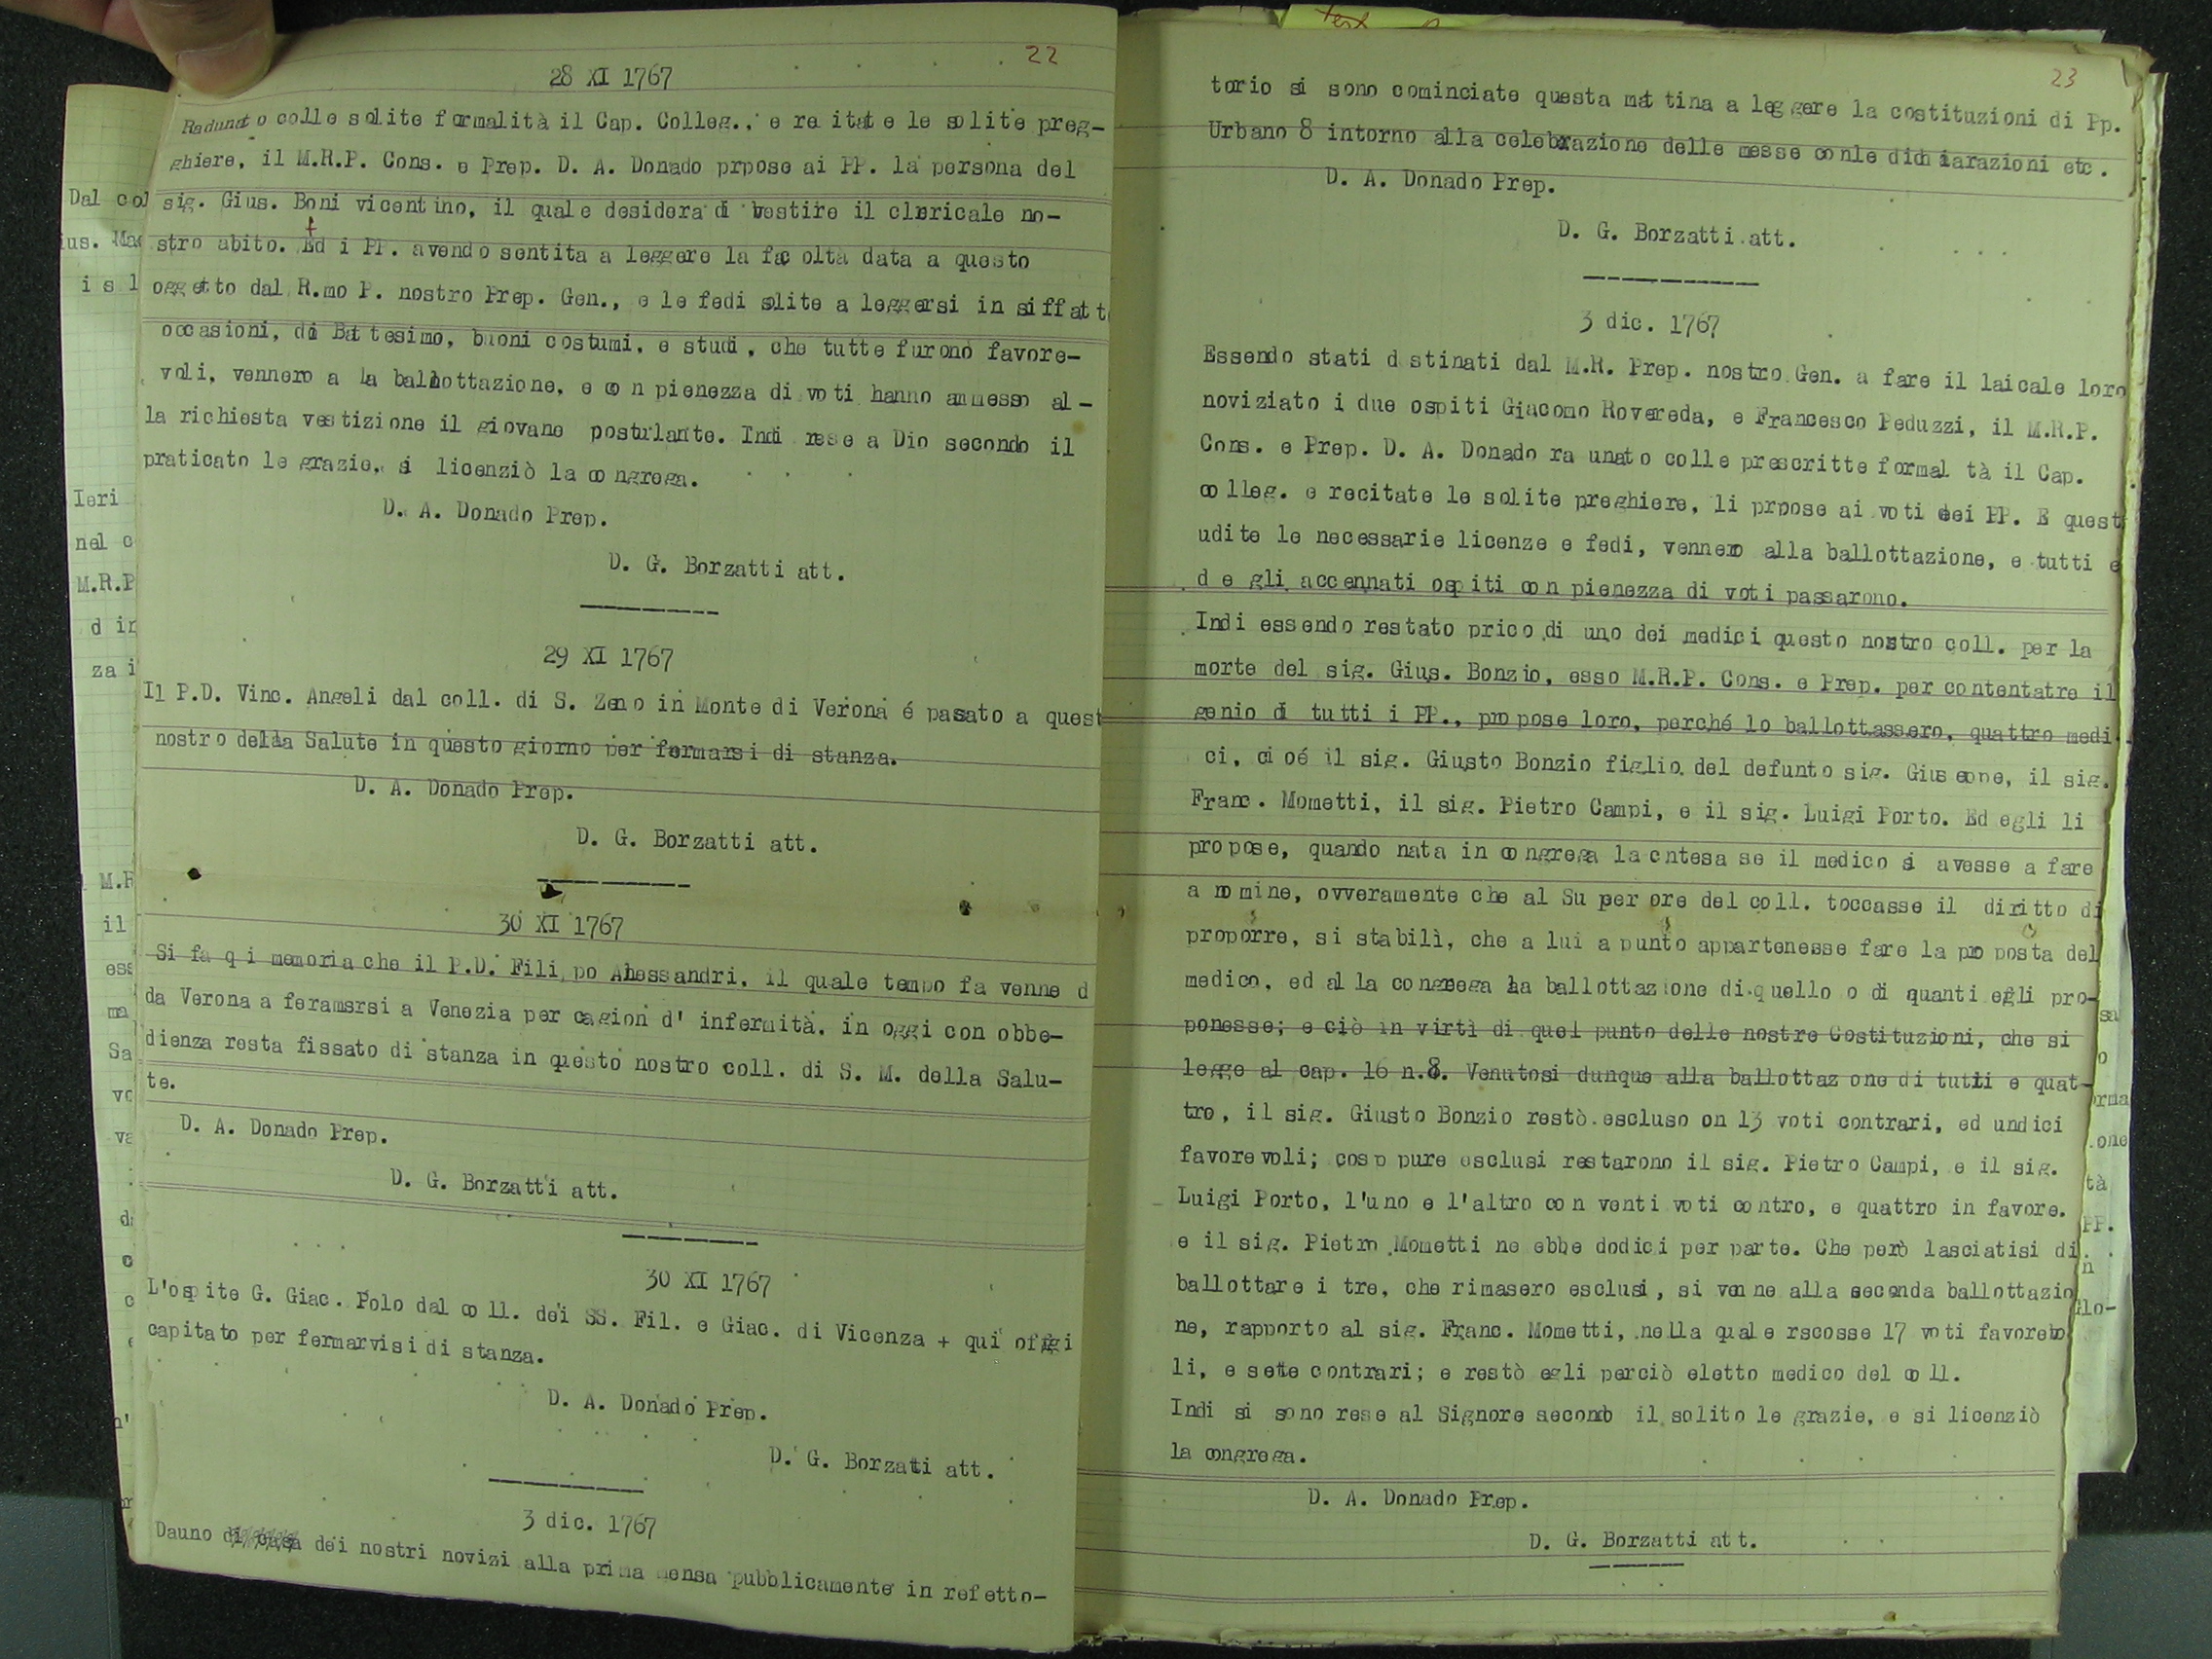 22
28 XI 1767
Radunato colle solite formalità il Cap. Colleg., e re itate le solite preg-
ghiere, il M.R.P. Cons. e Prep. D. A. Donado prpose ai PP. la persona del
sig. Gius. Boni vicentino, il quale desidera di vestire il clericale no-
stro abito. Ed i PP. avendo sentita a leggere la fac oltà data a questo
oggetto dal R.mo P. nostro Prep. Gen., e le fedi solite a leggersi in siffatt
occasioni, di Battesimo, buoni costumi, e studi, che tutte furono favore-
voli, vennero a la ballottazione, e con pienezza di voti hanno ammesso al-
la richiesta vestizione il giovane postulante. Indi rese a Dio secondo il
praticato le grazie, si licenziò la congrega.
D. A. Donado Prep.
D. G. Borzatti att.
29 XI 1767
Il P.D. Vinc. Angeli dal coll. di S. Zeno in Monte di Verona é passato a quest
nostro della Salute in questo giorno per fermarsi di stanza.
D. A. Donado Prep.
D. G. Borzatti att.
30 XI 1767
Si fa q i memoria che il P.D. Fili po Alessandri, il quale tempo fa venne d
da Verona a feramsrsi a Venezia per cagion d' infermità, in oggi con obbe-
dienza resta fissato di stanza in questo nostro coll. di S. M. della Salu-
te.
D. A. Donado Prep.
D. G. Borzatti att.
30 XI 1767
L'ospite G. Giac. Polo dal coll. dei SS. Fil. e Giac. di Vicenza + qui oggi
capitato per fermarvisi di stanza.
D. A. Donado Prep.
D. G. Borzatti att.
3 dic. 1767
Dauno di casa dei nostri novizi alla prima mensa pubblicamente in refetto-
23
torio si sono cominciate questa mattina a leggere la costituzioni di Pp.
Urbano 8 intorno alla celebrazione delle messe conle dichiarazioni etc.
D. A. Donado Prep.
D. G. Borzatti att.
3 dic. 1767
Essendo stati d stinati dal M.R. Prep. nostro Gen. a fare il laicale loro
noviziato i due ospiti Giacomo Rovereda, e Francesco Peduzzi, il M.R.P.
Cons. e Prep. D. A. Donado ra unato colle prescritte formal tà il Cap.
colleg. e recitate le solite preghiere, li prpose ai voti dei PP. E quest
udite le necessarie licenze e fedi, vennero alla ballottazione, e tutti e
d e gli accennati ospiti con pienezza di voti passarono.
Indi essendo restato prico di uno dei medici questo nostro coll. per la
morte del sig. Gius. Bonzio, esso M.R.P. Cons. e Prep. per contentatre il
genio di tutti i PP., propose loro, perché lo ballottassero, quattro medi
ci, cioé il sig. Giusto Bonzio figlio del defunto sig. Giuseppe, il sig.
Franc. Mometti, il sig. Pietro Campi, e il sig. Luigi Porto. Ed egli li
propose, quando nata in congrega la cntesa se il medico si avesse a fare
a nomine, ovveramente che al Su per ore del coll. toccasse il diritto di
proporre, si stabilì, che a lui a punto appartenesse fare la proposta del
medico, ed al la congrega la ballottazione di quello o di quanti egli pro-
ponesse; e ciò in virtì di quel punto delle nostre Costituzioni, che si
legge al cap. 16 n.8. Venutosi dunque alla ballottaz one di tutti e quat-
tro, il sig. Giusto Bonzio restò escluso on 13 voti contrari, ed undici
favorevoli; coso pure esclusi restarono il sig. Pietro Campi, e il sig.
Luigi Porto, l'uno e l'altro con venti voti contro, e quattro in favore.
e il sig. Pietro Mometti ne ebbe dodici per parte. Che però lasciatisi di
ballottare i tre, che rimasero esclusi, si venne alla seconda ballottazio
ne, rapporto al sig. Franc. Mometti, nella quale rscosse 17 voti favorevo
li, e sette contrari; e restò egli perciò eletto medico del coll.
Indi si sono rese al Signore secondo il solito le grazie, e si licenziò
la congrega.
D. A. Donado Prep.
D. G. Borzatti att.